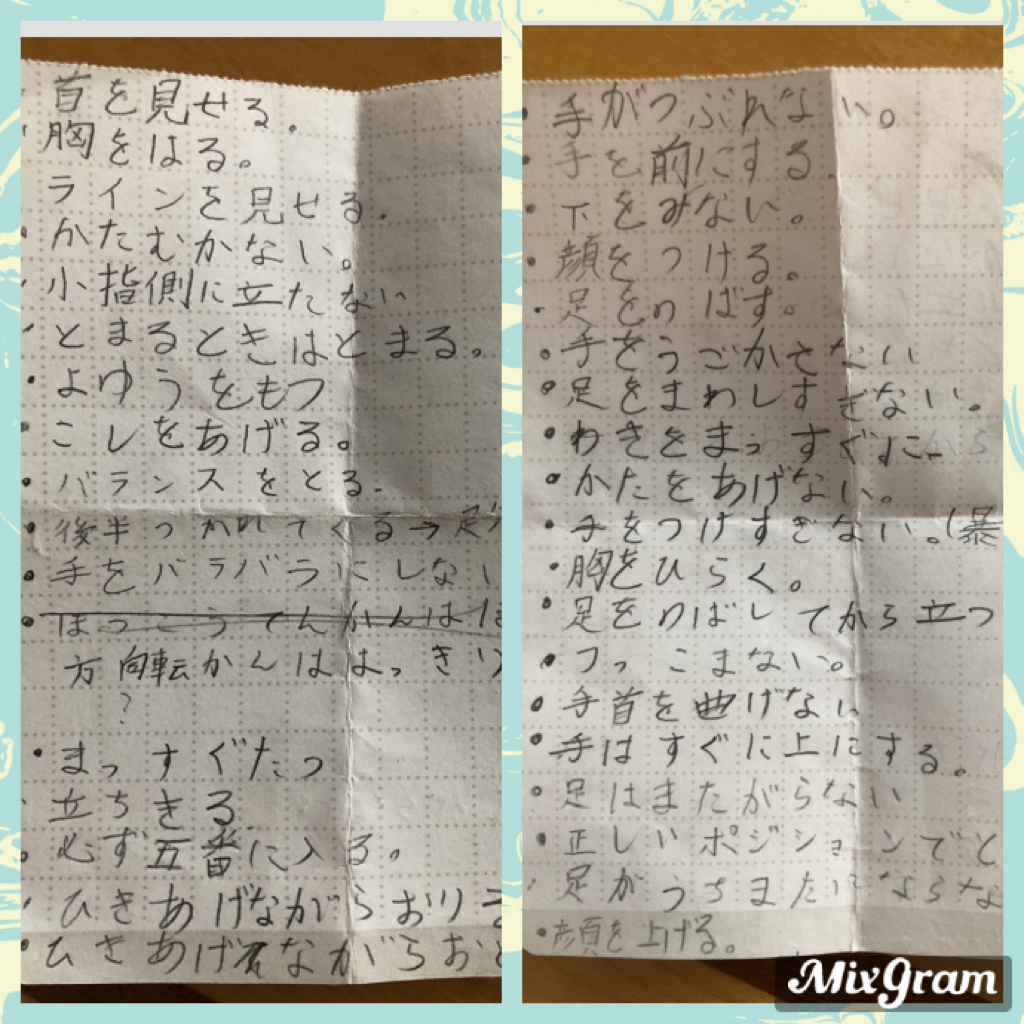 首を見せる.
胸をはる。
ラインを見せる.
かたむかない。
小指側に立たない
とまるときはとまる。
・よゆうをもつ
・こしをあげる。
・バランスをとる.
・後半つかれてくる→足
・手をバラバラにしない
・ほっこうてんかんはは
方向転かんははっきり
?
・まっすぐたつ
立ちきる
必ず五番に入る。
ひきあげながらおり
・ひきあげながらお
・手がつぶれない。
・手を前にする.
・下をみない。
・顔をつける。
・足をのばす。
・手をうごかさない
・足をまわしすぎない。
・わきをまっすぐに
・かたをあげない。
・手をつけすぎない。(暴
・胸をひらく。
・足をのばしてから立つ
・つっこまない。
・手首を曲げない
・手はすぐに上にする。
・足はまたがらない
・正しいポジションでと
・足がうちまたにならな
・顔を上げる。
MixGram